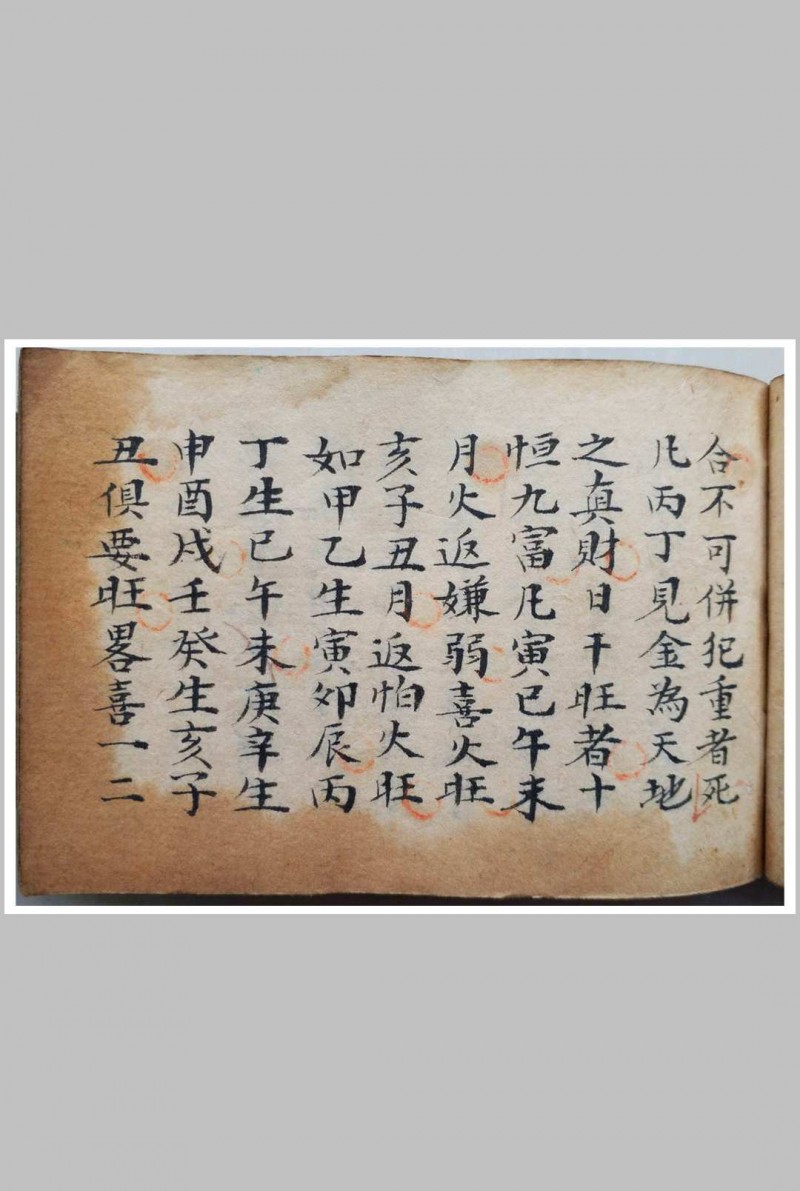 合不可併犯重者死
凢丙丁見金為天地
之真財日干旺者十
恒九富凢寅巳午未
月火返嫌弱喜火旺
亥子丑月返怕火旺
如甲乙生寅卯辰丙
丁生巳午未庚辛生
申酉戌壬癸生亥子
丑俱要旺畧喜一二